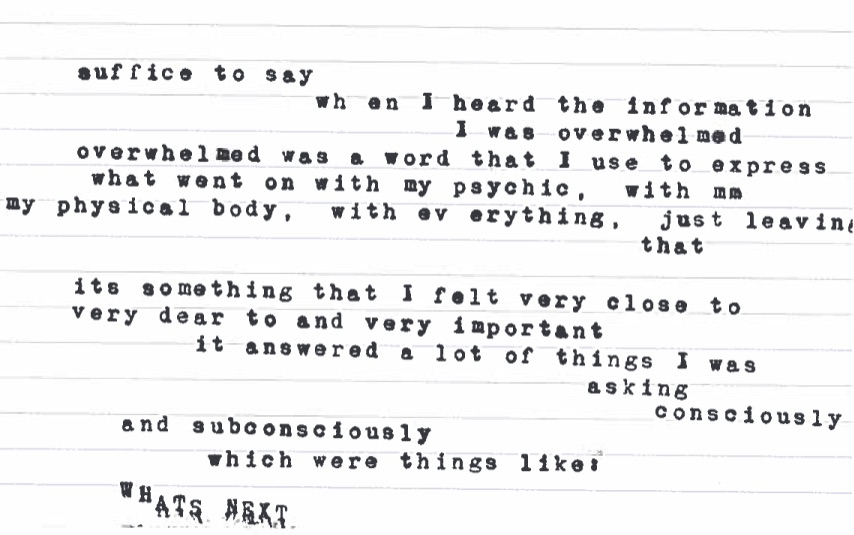 suffice to say
wh en I heard the information
I was overwhelmed
overwhelmed was a word that I use to express
what went on with my psychic, with mm
my physical body, with ev erything, just leaving
that
its something that I felt very close to
very dear to and very important
it answered a lot of things I was
asking
consciously
and subconsciously
which were things like:
WHATS NEXT